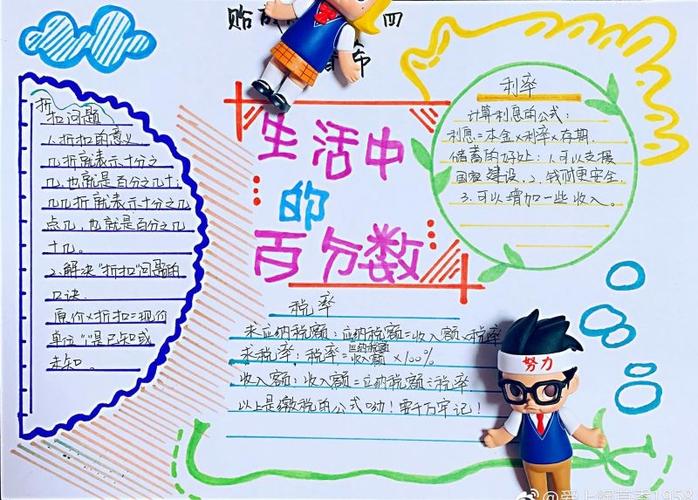 生活中
的
百分数
折
扣问题
1.折扣的意义
几折就表示十分之
几,也就是百分之几十;
几几折就表示十分之几
点几,也就是百分之几
十几。
2.解决"折扣"问题的
口诀.
原价×折扣=现价
单位"1"是已知或
未知。
利率
计算利息的公式:
利息=本金×利率×存期.
储蓄的好处:1.可以支援
国家建设、2、钱财更安全
3.可以增加一些收入。
税率
求应纳税额:应纳税额=收入额×税率
求税率:税率=应纳税额/收入额×100%
收入额:收入额=应纳税额÷税率
以上是缴税的公式呦!要千万牢记!
努力